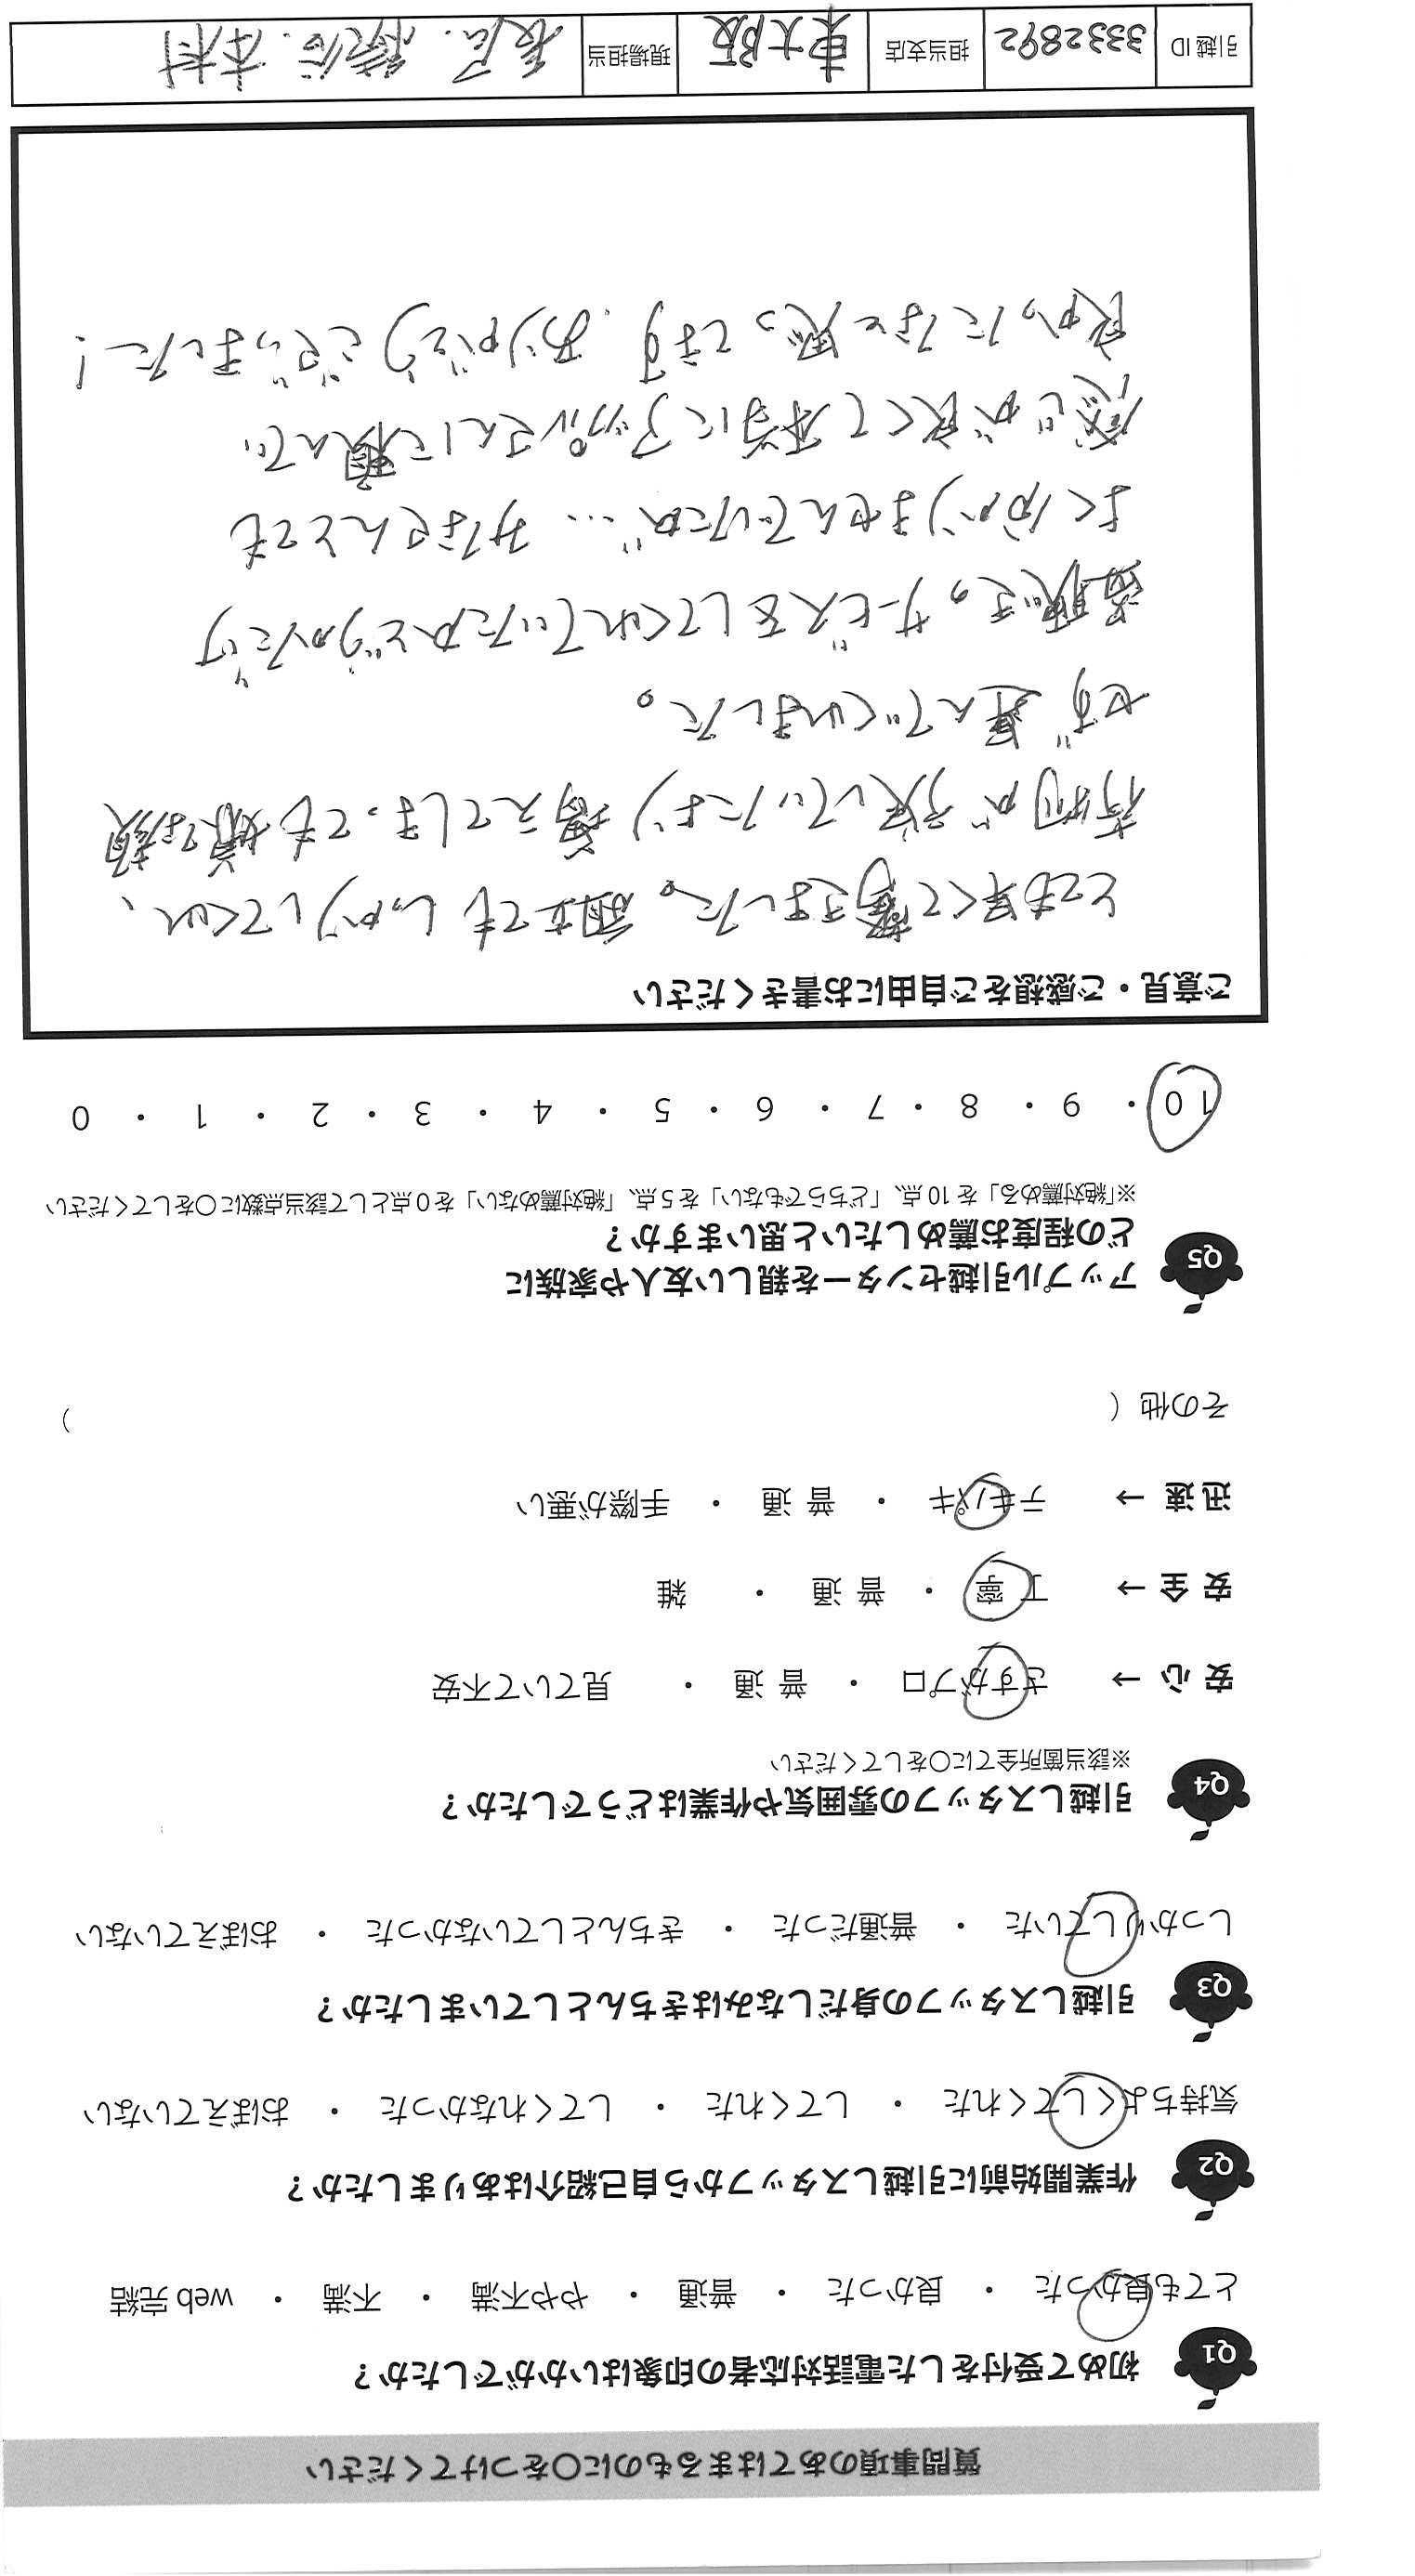 質問事項のあてはまるものに○をつけてください
Q1 初めて受付をした電話対応者の印象はいかがでしたか？
とても良かった ・ 良かった ・ 普通 ・ やや不満 ・ 不満 ・ web 完結
Q2 作業開始前に引越しスタッフから自己紹介はありましたか？
気持ちよくしてくれた ・ してくれた ・ してくれなかった ・ おぼえていない
Q3 引越しスタッフの身だしなみはきちんとしていましたか？
しっかりしていた ・ 普通だった ・ きちんとしていなかった ・ おぼえていない
Q4 引越しスタッフの雰囲気や作業はどうでしたか？
※該当箇所全てに○をしてください
安 心 → さすがプロ ・ 普 通 ・ 見ていて不安
安 全 → 丁 寧 ・ 普 通 ・ 雑
迅 速 → テキパキ ・ 普 通 ・ 手際が悪い
その他（ ）
Q5 アップル引越センターを親しい友人や家族に
どの程度お薦めしたいと思いますか？
※「絶対薦める」を 10 点、「どちらでもない」を 5 点、「絶対薦めない」を 0 点として該当点数に○をしてください
10 ・ 9 ・ 8 ・ 7 ・ 6 ・ 5 ・ 4 ・ 3 ・ 2 ・ 1 ・ 0
ご意見・ご感想をご自由にお書きください
とても早くて驚きました。組立てもしっかりしてくれ、
荷物が予定していたより増えてしまっても嫌な顔
せず運んでくれました。
サービスをしてくれていたかどうかだけ
よく分かりませんでしたが… みなさんとても
感じが良くて本当にアップルさんに頼んで
良かったなと思ってます. ありがとうございました！
引越 ID 3332892 担当支店 東大阪 現場担当 本村